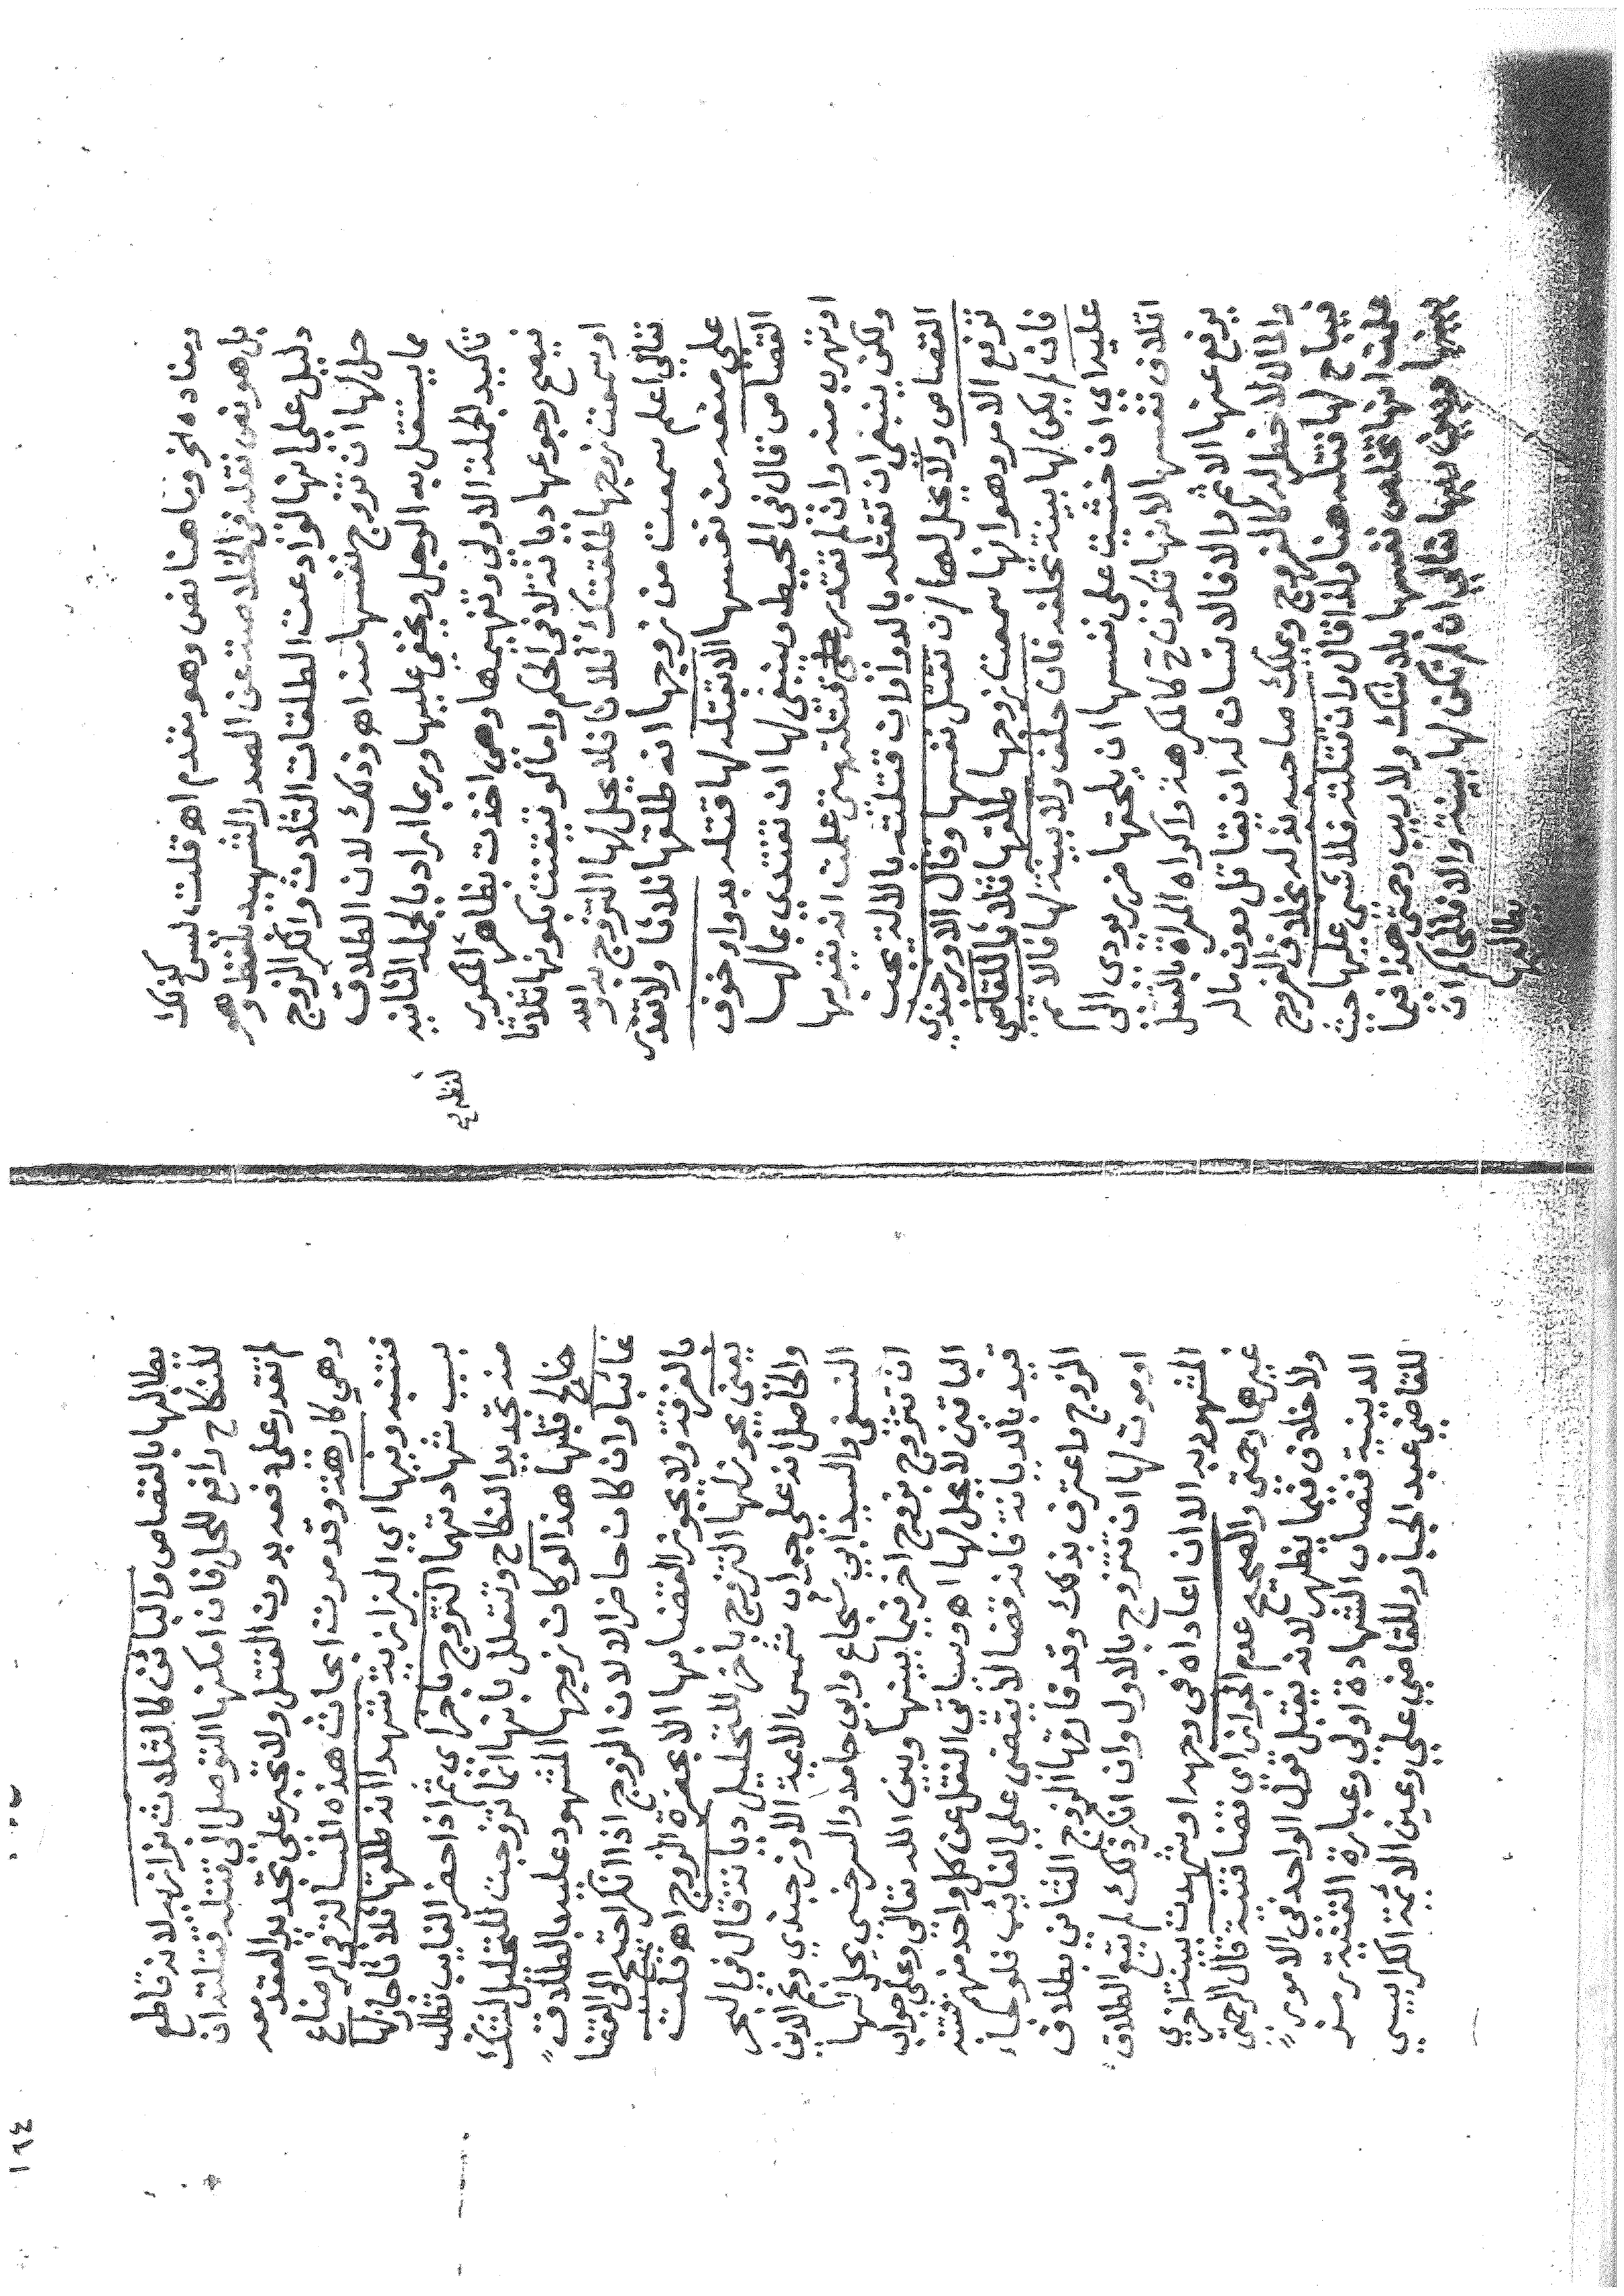 ويناده اخر وما هنا نص وهو مقدم اهـ قلت ليس كذلك
بل هو نص نقله في الخلاصة عن الصدر الشهيد بلفظ وهو
دليل على انها لو ادعت الطلقات الثلاث وانكر الزوج
حل لها ان تزوج نفسها منه اهـ وذلك لان الطلاق
مما يستقل به الرجل ويخفى عليها وربما اراد بالجملة الثانية
تاكيد الجملة الاولى وتفهيمها وهي اخذت بظاهر المكرر
لفظه
فيصح رجوعها ديانة لا في الحكم واما لو تيقنت بكونها ثلاثا
او سمعت زوجها طلقتك ثلاثا فلا يحل لها التزوج به والله
تعالى اعلم سمعت من زوجها انه طلقها ثلاثا ولا تقدر
على منعه من نفسها الا بقتله لها قتله بدواء خوف
القصاص قال في المحيط وينبغي لها ان تفتدي بمالها
او تهرب منه وان لم تقدر قتلته متى علمت انه يقربها
ولكن ينبغي ان تقتله بالدواء وان قتلته بالالة يجب
القصاص ولا يحل لها ان تقتل نفسها وقال الاوزجندي
ترفع الامر وهو انها سمعت زوجها طلقها ثلاثا للقاضي
فان لم يكن لها بينة تحلفه فان حلف ولا بينة لها فالاثم
عليه اي ان خشيت على نفسها ان يلحقها ضرر يودى الى
اتلاف نفسها لانها تكون ح كالمكرهة واكراه المراة بالقتل
يرفع عنها الاثم والا فالانسان له ان يقاتل دون ماله
والمال لا خطر له كالفروج ويملك صاحبه بذله بخلاف الفروج
فيباح لها قتله هنا ولذا قال وان قتلته فلا شي عليها حيث
علمت انها تخلص نفسها بلا شك ولا ريب رحمتي هذا فيما
بينها وبين ربها تعالى ان لم تكن لها بينة والا فللحاكم ان
يطالبها
١٩٤
يطالبها بالقصاص والبائن كالثلاث بزازيه لانه قاطع
للنكاح رافع للحل فان امكنها التوصل الى قتله قتلته ان
لم تقدر على دفعه بدون القتل ولا تجبر على تجديد العقد معه
وهي كارهة وقد مرت ابحاث هذه المسالة في الرضاع
فتنبه وفيها اي البزازية شهدا انه طلقها ثلاثا جاز لها
بسبب شهادتهما التزوج باخر اي ثم اذا حضر الغايب تطلب
منه تجديد النكاح وتتعلل بانها انما تزوجت للتحليل لشكـ
خالج قلبها هذا لو كان زوجها المشهود عليه بالطلاق
غائبا وان كان حاضرا لا لان الزوج اذا انكر احتيج الى القضا
بالفرقة ولا يجوز القضا بها الا بحضرة الزوج اهـ قلت
يعني يجوز لها التزوج باخر للتحليل ديانة قال في البحر
والحاصل انه على جواب شمس الايمة الاوزجندي ونجم الدين
النسفي والسيد ابي شجاع وابي حامد والسرخسي يحل لها
ان تتزوج بزوج اخر فيما بينها وبين الله تعالى وعلى جواب
الباقين لا يحل لها اهـ وسياتي النقل عن كل واحد منهم فتنبه
قيد بالديانة فانه قضا لا يقضى على الغائب فلو جاء
الزوج واعترف بذلك وقد فارقها الزوج الثاني بطلاق
او موت لها ان تتزوج بالاول وان انكر ذلك لم يقع الطلاق
المشهود به الا ان اعاداه في وجهه او شهدت بينة اخرى
غيرها رحمتي والصحيح عدم الجواز اي قضا قنية قال الرحمتي
ولا خلاف فيما يظهر لانه يقبل قول الواحد في الامور
الدينية فنصاب الشهادة اولى وعبارة القنية رمز
للقاضي عبد الجبار وللقاضي علي وعين الائمة الكرابيسي